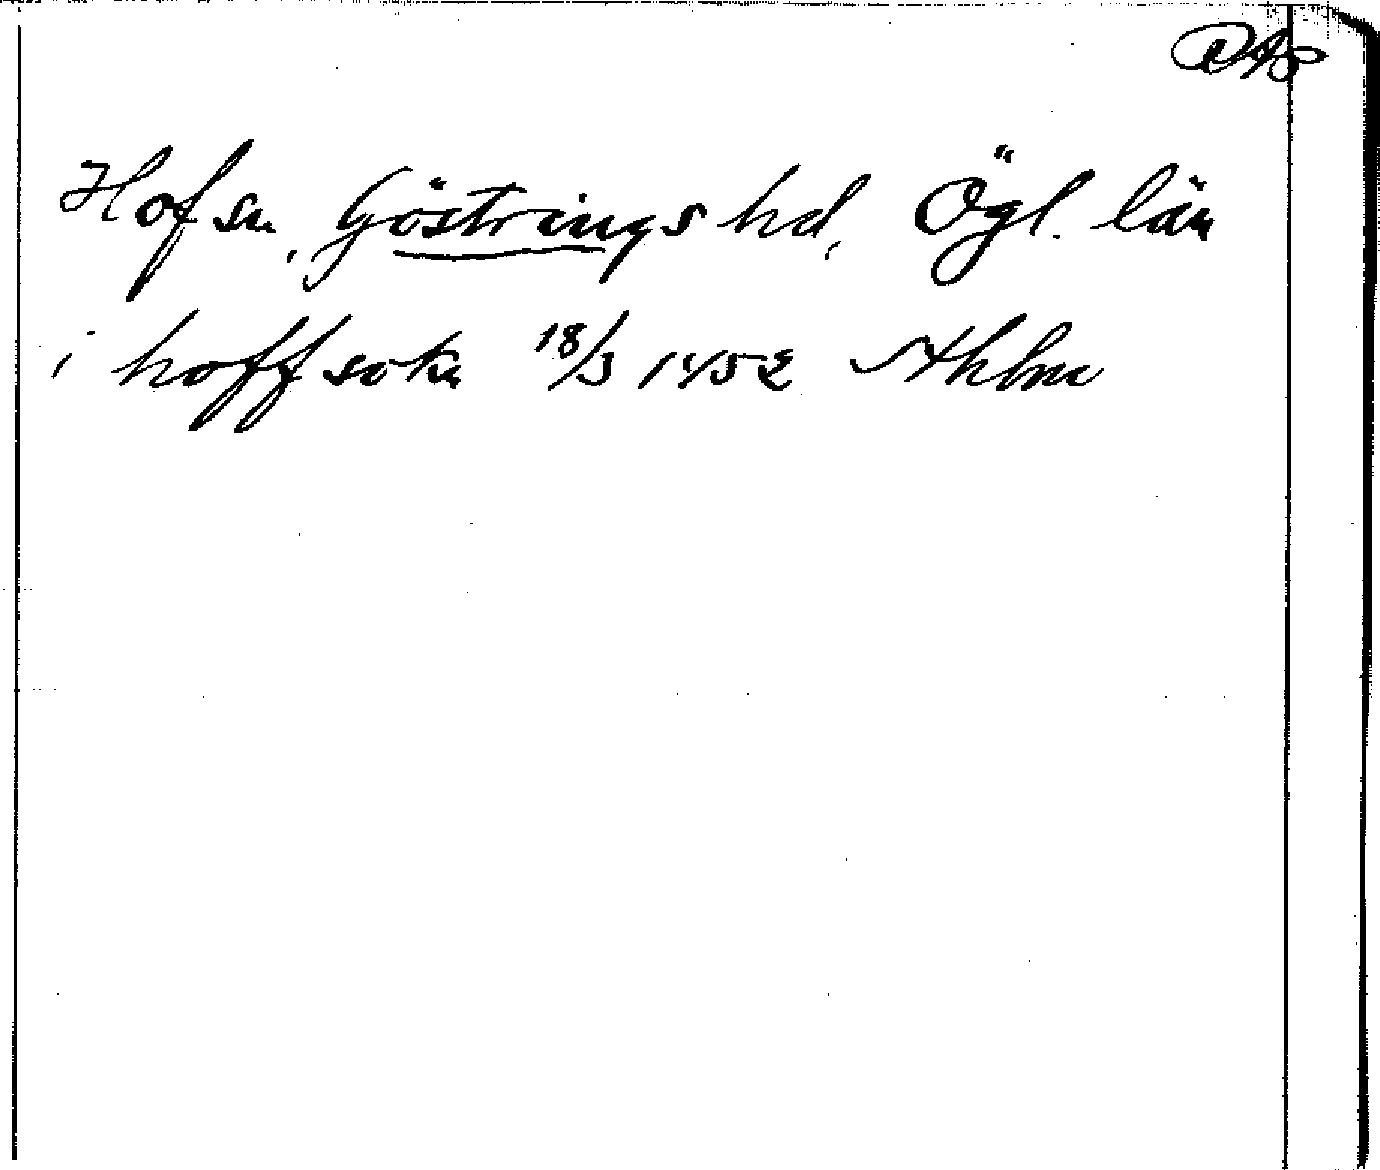 Hof sn, Göstrings hd, Ögl. län
i hoff sokn 18/3 1452